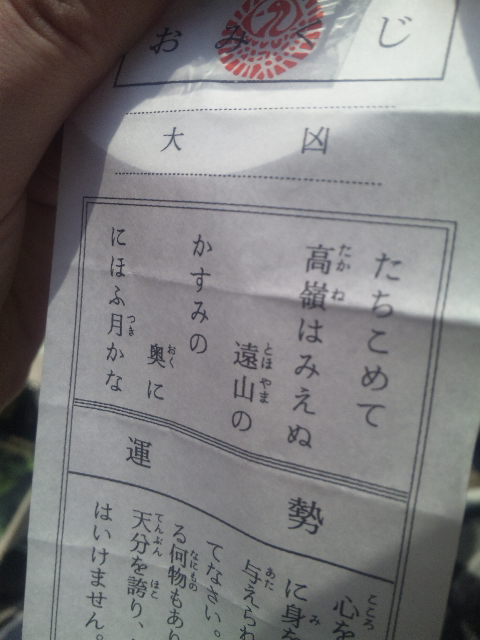 おみくじ
大凶
たちこめて
高嶺はみえぬ
遠山の
かすみの
奥に
にほふ月かな
運勢
心を
に身を
与えられ
てなさい。
る何物もあり
天分を誇り、
はいけません。